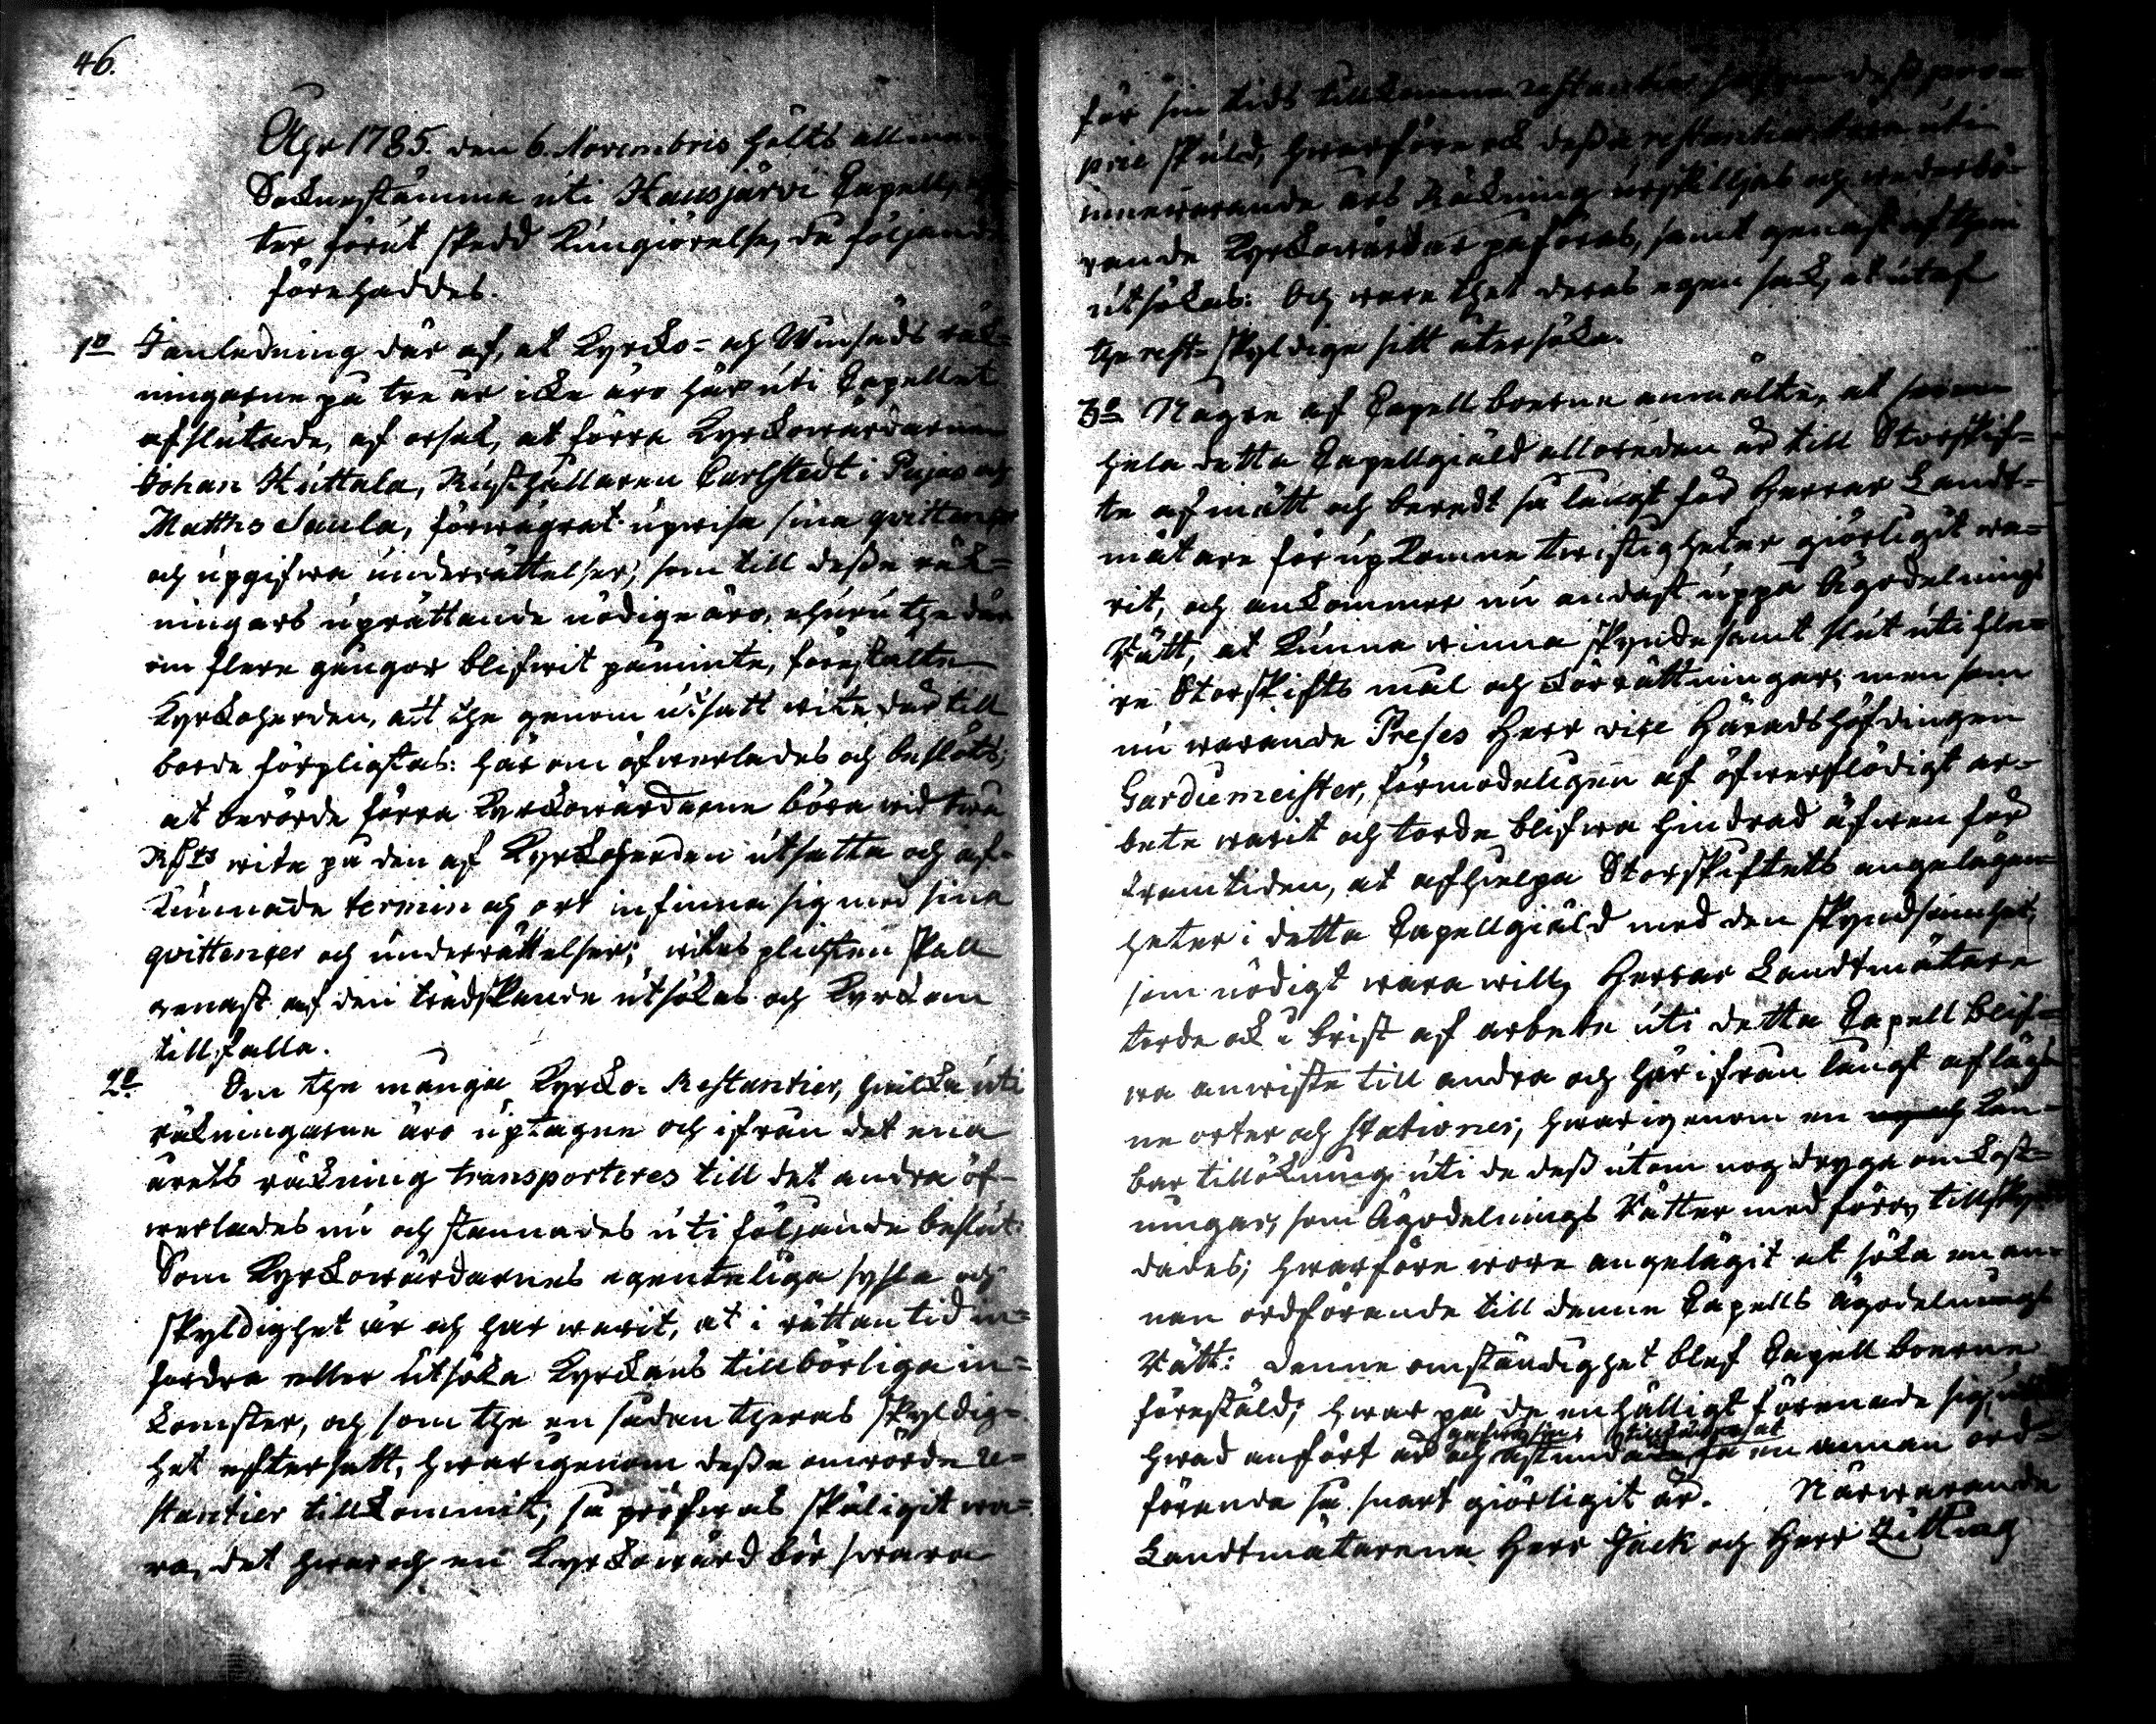 46.
Åhr 1785. den 6. Novembris hölts allmän
Soknestämma uti Hausjärvi Capell,
ter förut skedd kungiörelse, då följande
förehaddes.
1o I anledning der af, at Kyrko- och Winsäds räk-
ningarne på tre år icke äro här uti Capellet
afslutade, af orsak, at förra Kyrkowärdarne
Johan Kuttala, Rusthållaren Carlstedt i Pujas och
Matths Saula, förwägrat upwisa sina qvittencer
och upgifwa underrättelser, som till desse räk-
ningars uprättande nödige äro, ehuru the där
om flere gångor blifwit påminte, förestälte
Kyrkoherden, att the genom utsatt wite där till
borde förpligtas: här om öfwerlades och beslöts,
at berörde förra Kyrkowärdarne böra wid twå
Rdrs wite på den af Kyrkoherden utsatta och af-
kunnade termin och ort infinna sig med sina
qvittenser och underrättelser; wites plichten skall
genast af den tredskande utsökas och Kyrkan
tillfalla.
2o Om the många Kyrko-Restantier, hwilka uti
räkningarne äro uptagne och ifrån det ena
årets räkning transporteres till det andra öf-
werlades nu och stannades uti följande beslut:
Som Kyrkowärdarnes egenteliga sysla och
skyldighet är och har warit, at i rättan tid in-
fordra eller utsöka Kyrkans tillbörliga in-
komster, och som the en sådan theras skyldig-
het eftersatt, hwarigenom desse omrörde re-
stantier tillkommit; så pröfwas skäligit wa-
ra, det hwar och en Kyrkowärd bör swara
för sin tids tillkomna restantier såsom des pro-
prie skuld, hwarföre ock dessa restantier böra uti
innewarande års Räkning urskilljas och wederbö-
rande Kyrkowärdar påföras, samt genast af them
utsökas: Och ware thet deras egen sak, at utaf
the rest-skyldige sitt återsöka.
3o Någre af Capellboerne anmälte, at som
hela detta Capellgiäld alloredan är till Storskif-
te afmätt och beredt så långt för Herrar Landt-
mätare för upkomne twistigheter giörligit wa-
rit, och ankommer nu endast uppå Ägodelnings
Rätt, at kunna winna skyndesamt slut uti fle-
re Storskifts mål och förrättningar; men som
nu warande Preses Herr vice Häradshöfdingen
Gardiemeister, förmodeligen af öfwerflödigt ar-
bete warit och torde blifwa hindrad äfwen för
framtiden, at afhielpa Storskiftets angelägen-
heter i detta Capellgiäld med den skyndsamhet,
som nödigt wara will, Herrar Landtmätare
torde ock i brist af arbete uti detta Capell blif-
wa anwiste till andra och härifrån långt afläg-
ne orter och stationer, hwarigenom en kän-
bar tillökning uti de dess utom nog dryga omkost-
ningar, som Ägodelnings Rätter medföra, tillskyn-
dades; hwarföre wore angelägit at söka en an-
nan ordförande till denne Capells ägodelnings
Rätt: denne omständighet blef Capellboerne
förestäld; hwar på de enhälligt förenade sig,
hwad anfört är och åstunda få en annan ord-
förande så snart giörligit är. Närwarande
Landtmätarena Herr Jack och Herr Zitting